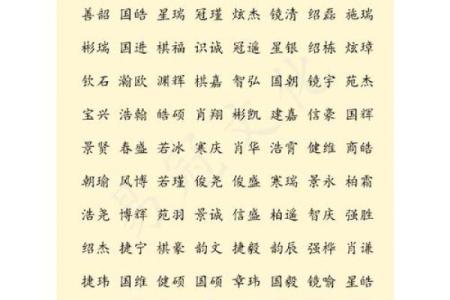 善韶 国皓 星瑞 冠瑾 炫杰 镜清 绍磊 施瑞
彬瑞 国进 棋福 识诚 冠遥 星银 绍栋 炫璋
钦石 瀚欧 渊辉 棋嘉 智弘 国朝 镜宇 苑杰
宝兴 浩翰 皓硕 肖翔 彬凯 建嘉 信豪 国辉
景贤 春盛 若冰 寒庆 肖华 浩霄 健维 商皓
朝瑜 风博 若瑾 俊尧 俊盛 寒瑞 景永 柏霜
浩尧 博辉 苑羽 景诚 信盛 柏遥 智庆 强胜
绍杰 捷宁 棋豪 韵文 捷毅 韵辰 强桦 肖谦
捷玮 国维 健硕 国硕 章玮 国毅 镜喻 星皓